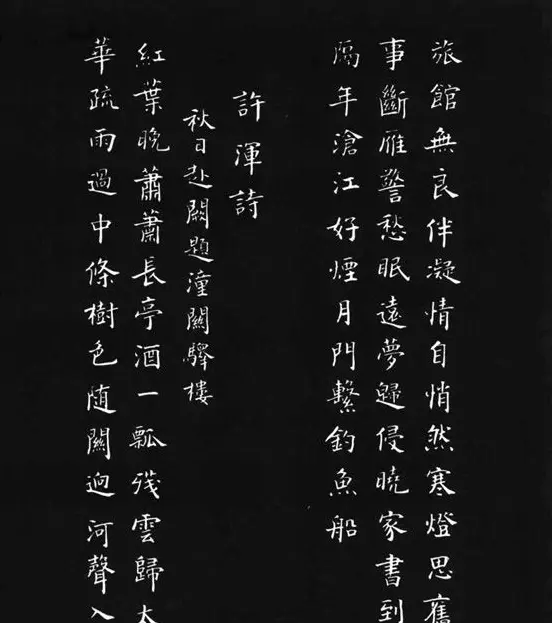 旅館無良伴凝情自悄然寒燈思舊
事斷雁警愁眠遠夢歸侵曉家書到
隔年滄江好煙月門繫釣魚船
許渾詩
秋日赴闕題潼關驛樓
紅葉晚蕭蕭長亭酒一瓢殘雲歸太
華疏雨過中條樹色隨關迥河聲入